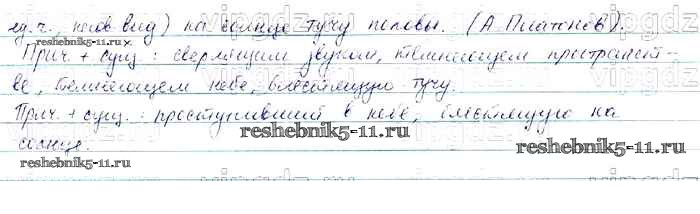 ед.ч., несов. вид) на солнце тучу половы. (А. Платонов).
Прич. + сущ.: сверлящим звуком, темнеющем пространст-
ве, темнеющем небе, блестящую тучу.
Прич. + сущ.: проступивший в небе, блестящую на
солнце.
reshebnik5-11.ru
reshebnik5-11.ru
reshebnik5-11.ru
reshebnik5-11.ru